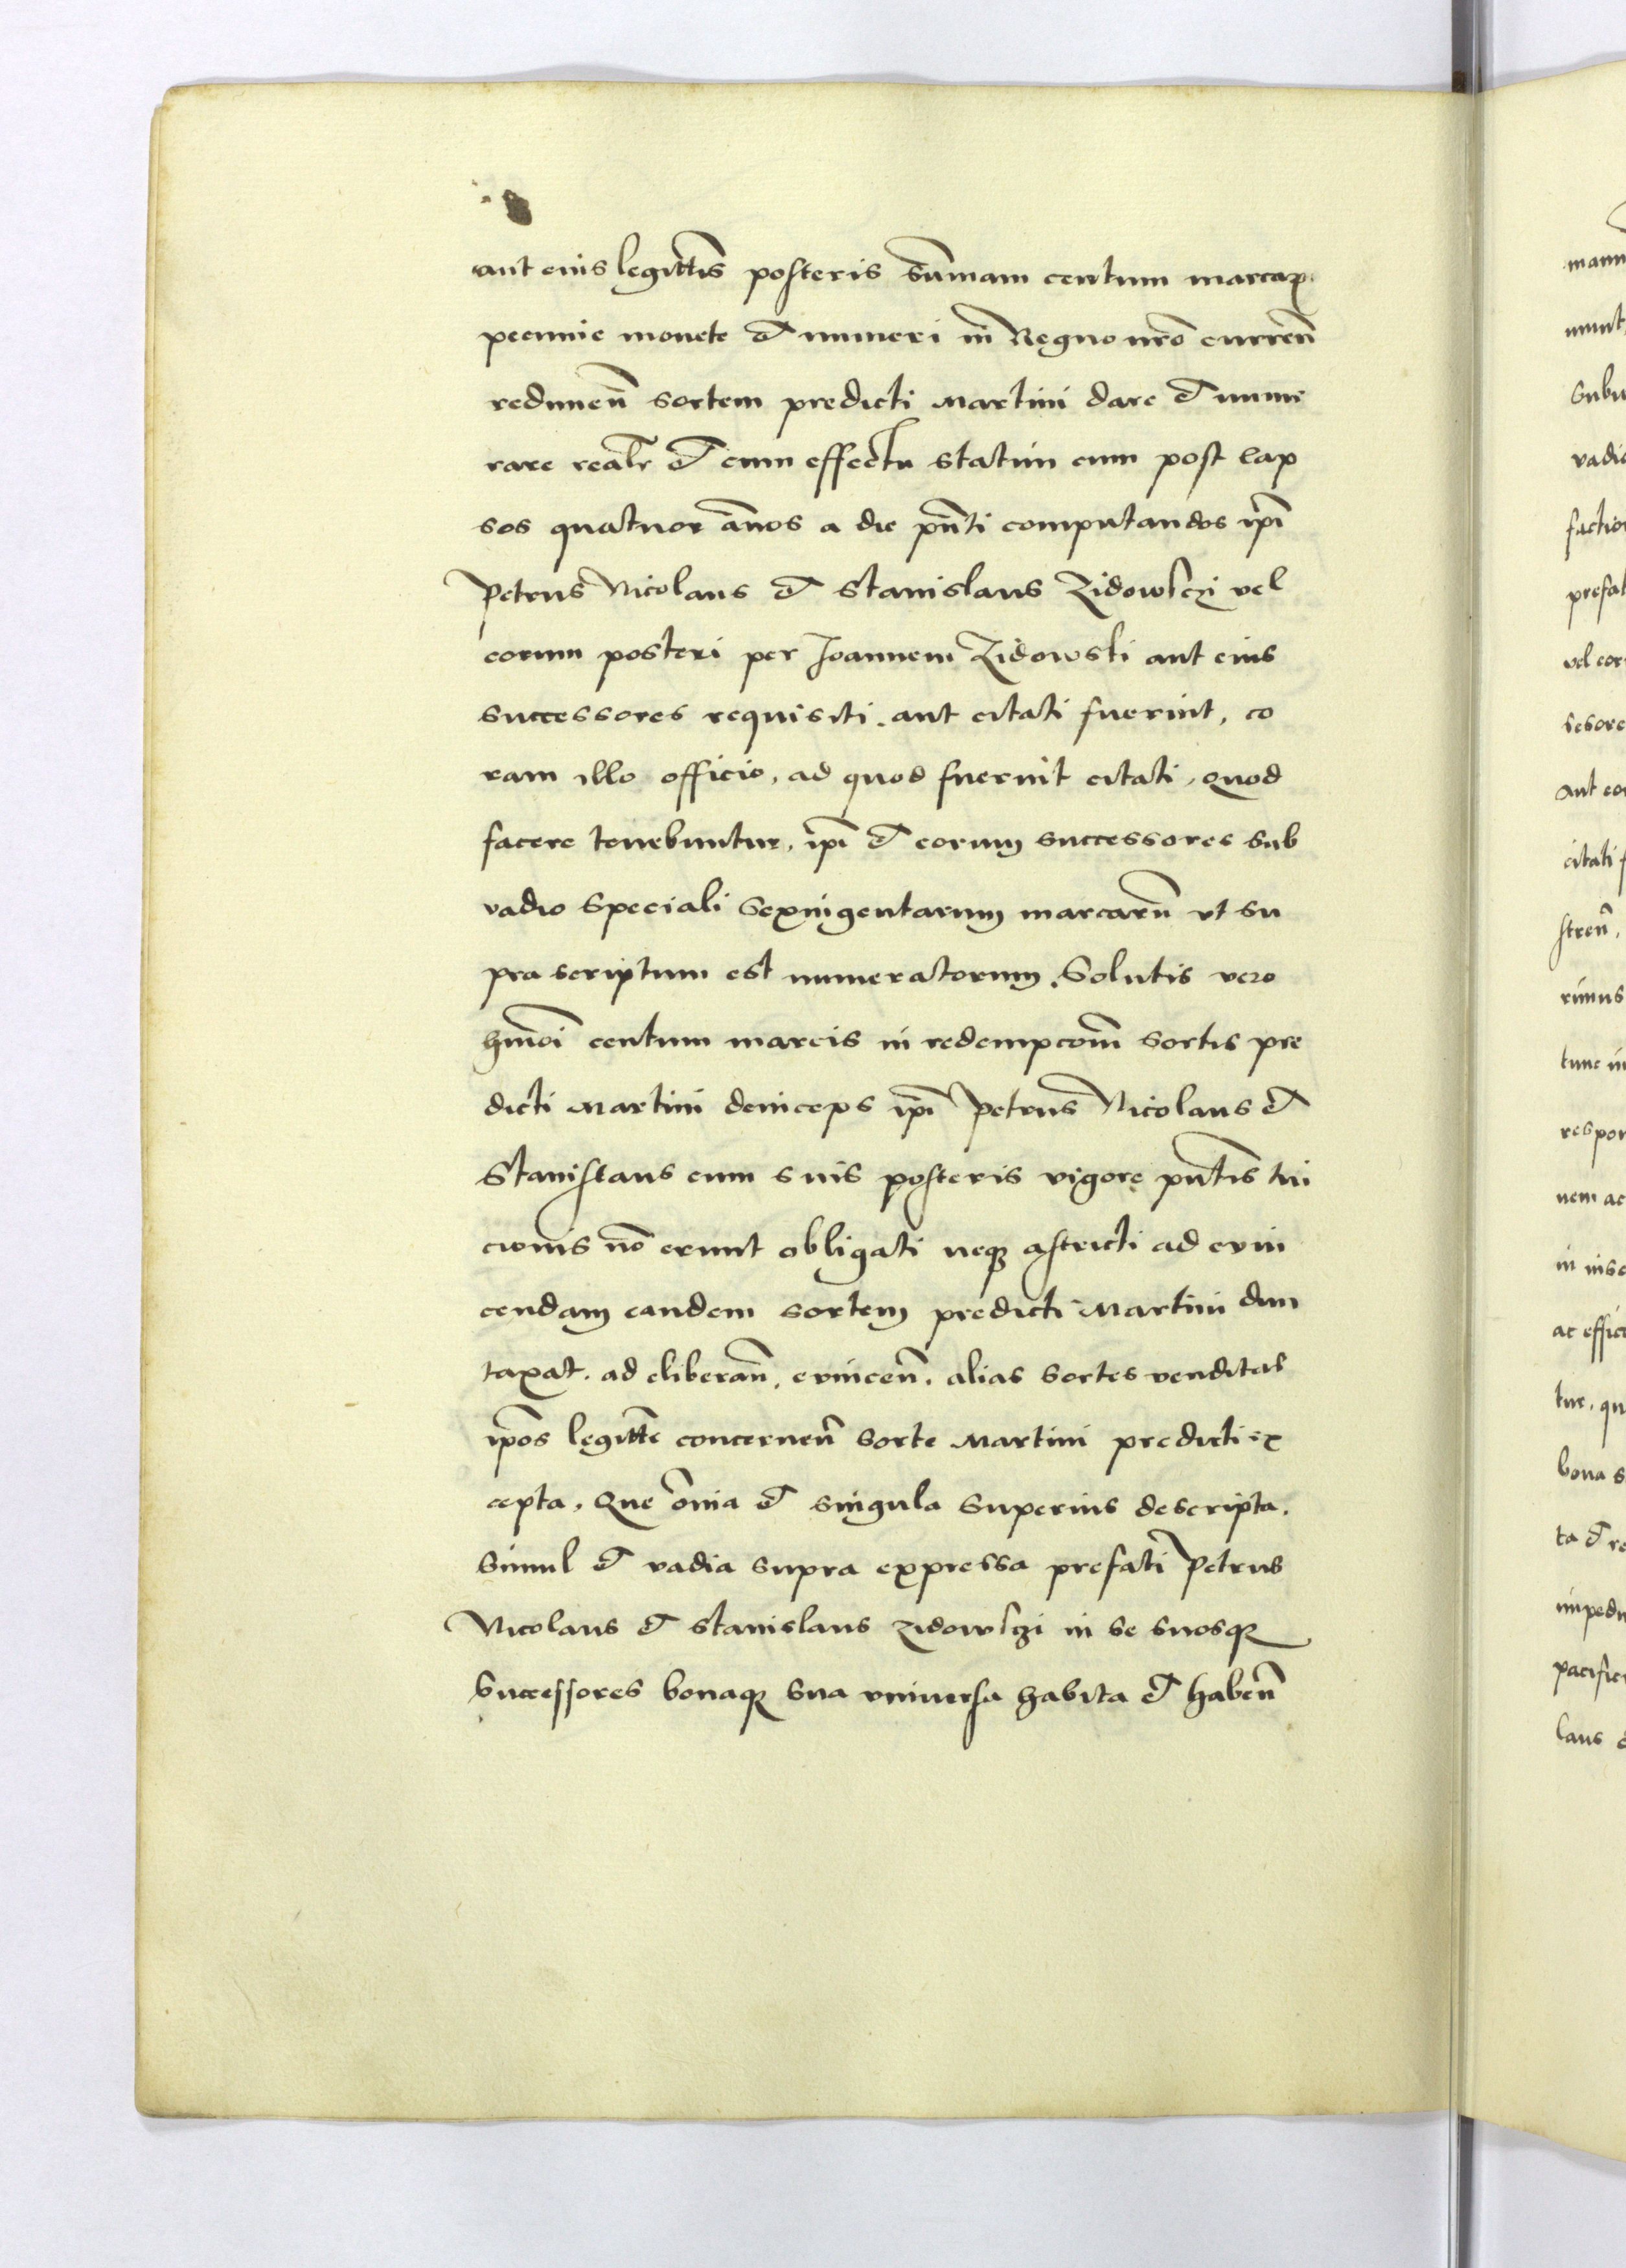 aut eius legittis posteris sum̄mam centum marcaꝝ
pecunie monete et numeri in Regno nr̄o curren̄
redimen̄ sortem predicti Martini dare et nume
rare realr̄ et cum effectu statim cum post lap
sos quatuor an̄os a die pn̄ti computandos ip̄i
Petrus Nicolaus et Stanislaus Zidowsczi vel
eorum posteri per Joannem Zidowski aut eius
successores requisiti. aut citati fuerint, co
ram illo officio, ad quod fuerint citati, quod
facere tenebuntur, ip̄i et eorum successores sub
vadio speciali Sexingentarum marcarū ut su
pra scriptum est numeratorum. Solutis vero
hm̄oi centum marcis in redempcōm sortis pre
dicti Martini deinceps ip̄i Petrus Nicolaus et
Stanislaus cum suis posteris vigore pn̄tis tui
cionis nō erunt obligati neqꝫ astricti ad evin
cendam eandem sortem predicti Martini dun
taxat. ad eliberan̄, evincen̄. alias sortes venditas
ip̄os legittē concernen̄ sorte Martini predicti ex
cepta, Que om̄ia et singula superius descripta.
simul et vadia supra expressa prefati Petrus
Nicolaus et Stanislaus Zidowsczi in se suosqꝫ
successores bonaqꝫ sua universa habita et haben̄